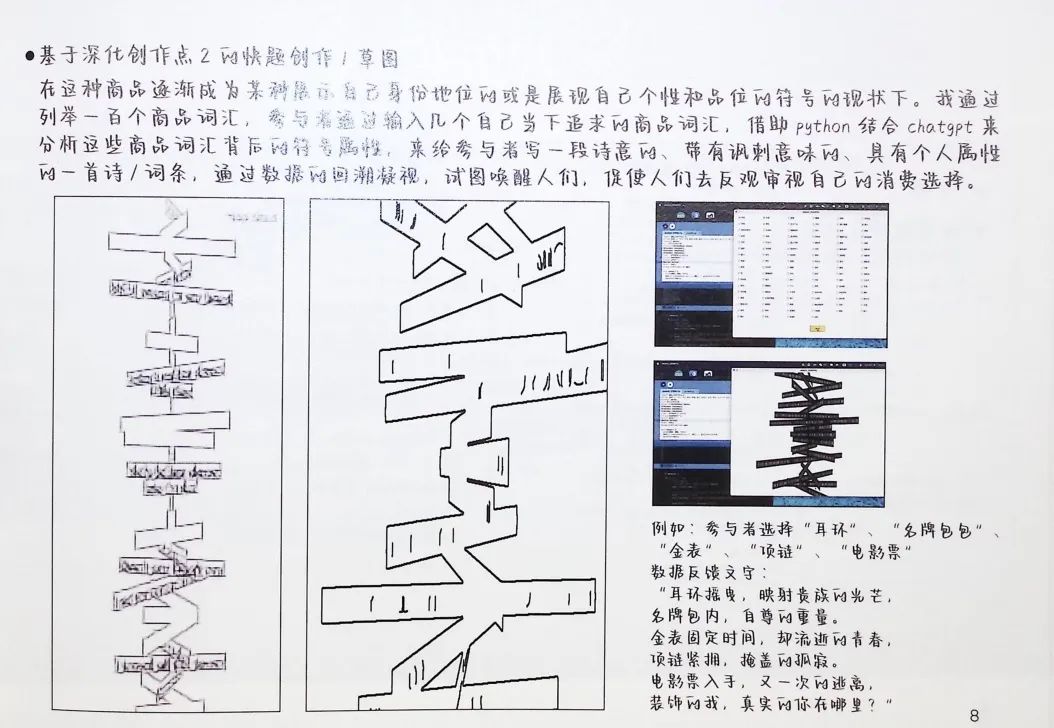 ●基于深化创作点2的快题创作/草图
在这种商品逐渐成为某种展示自己身份地位的或是展现自己个性和品位的符号的现状下。我通过
列举一百个商品词汇，参与者通过输入几个自己当下追求的商品词汇，借助python结合chatgpt来
分析这些商品词汇背后的符号属性，来给参与者写一段诗意的、带有讽刺意味的、具有个人属性
的一首诗/词条，通过数据的回溯凝视，试图唤醒人们，促使人们去反观审视自己的消费选择。
例如：参与者选择“耳环”、“名牌包包”、
“金表”、“项链”、“电影票”
数据反馈文字：
“耳环摇曳，映射贵族的光芒，
名牌包内，自尊的重量。
金表固定时间，却流逝的青春，
项链紧拥，掩盖的孤寂。
电影票入手，又一次的逃离，
装饰的我，真实的你在哪里？”
8